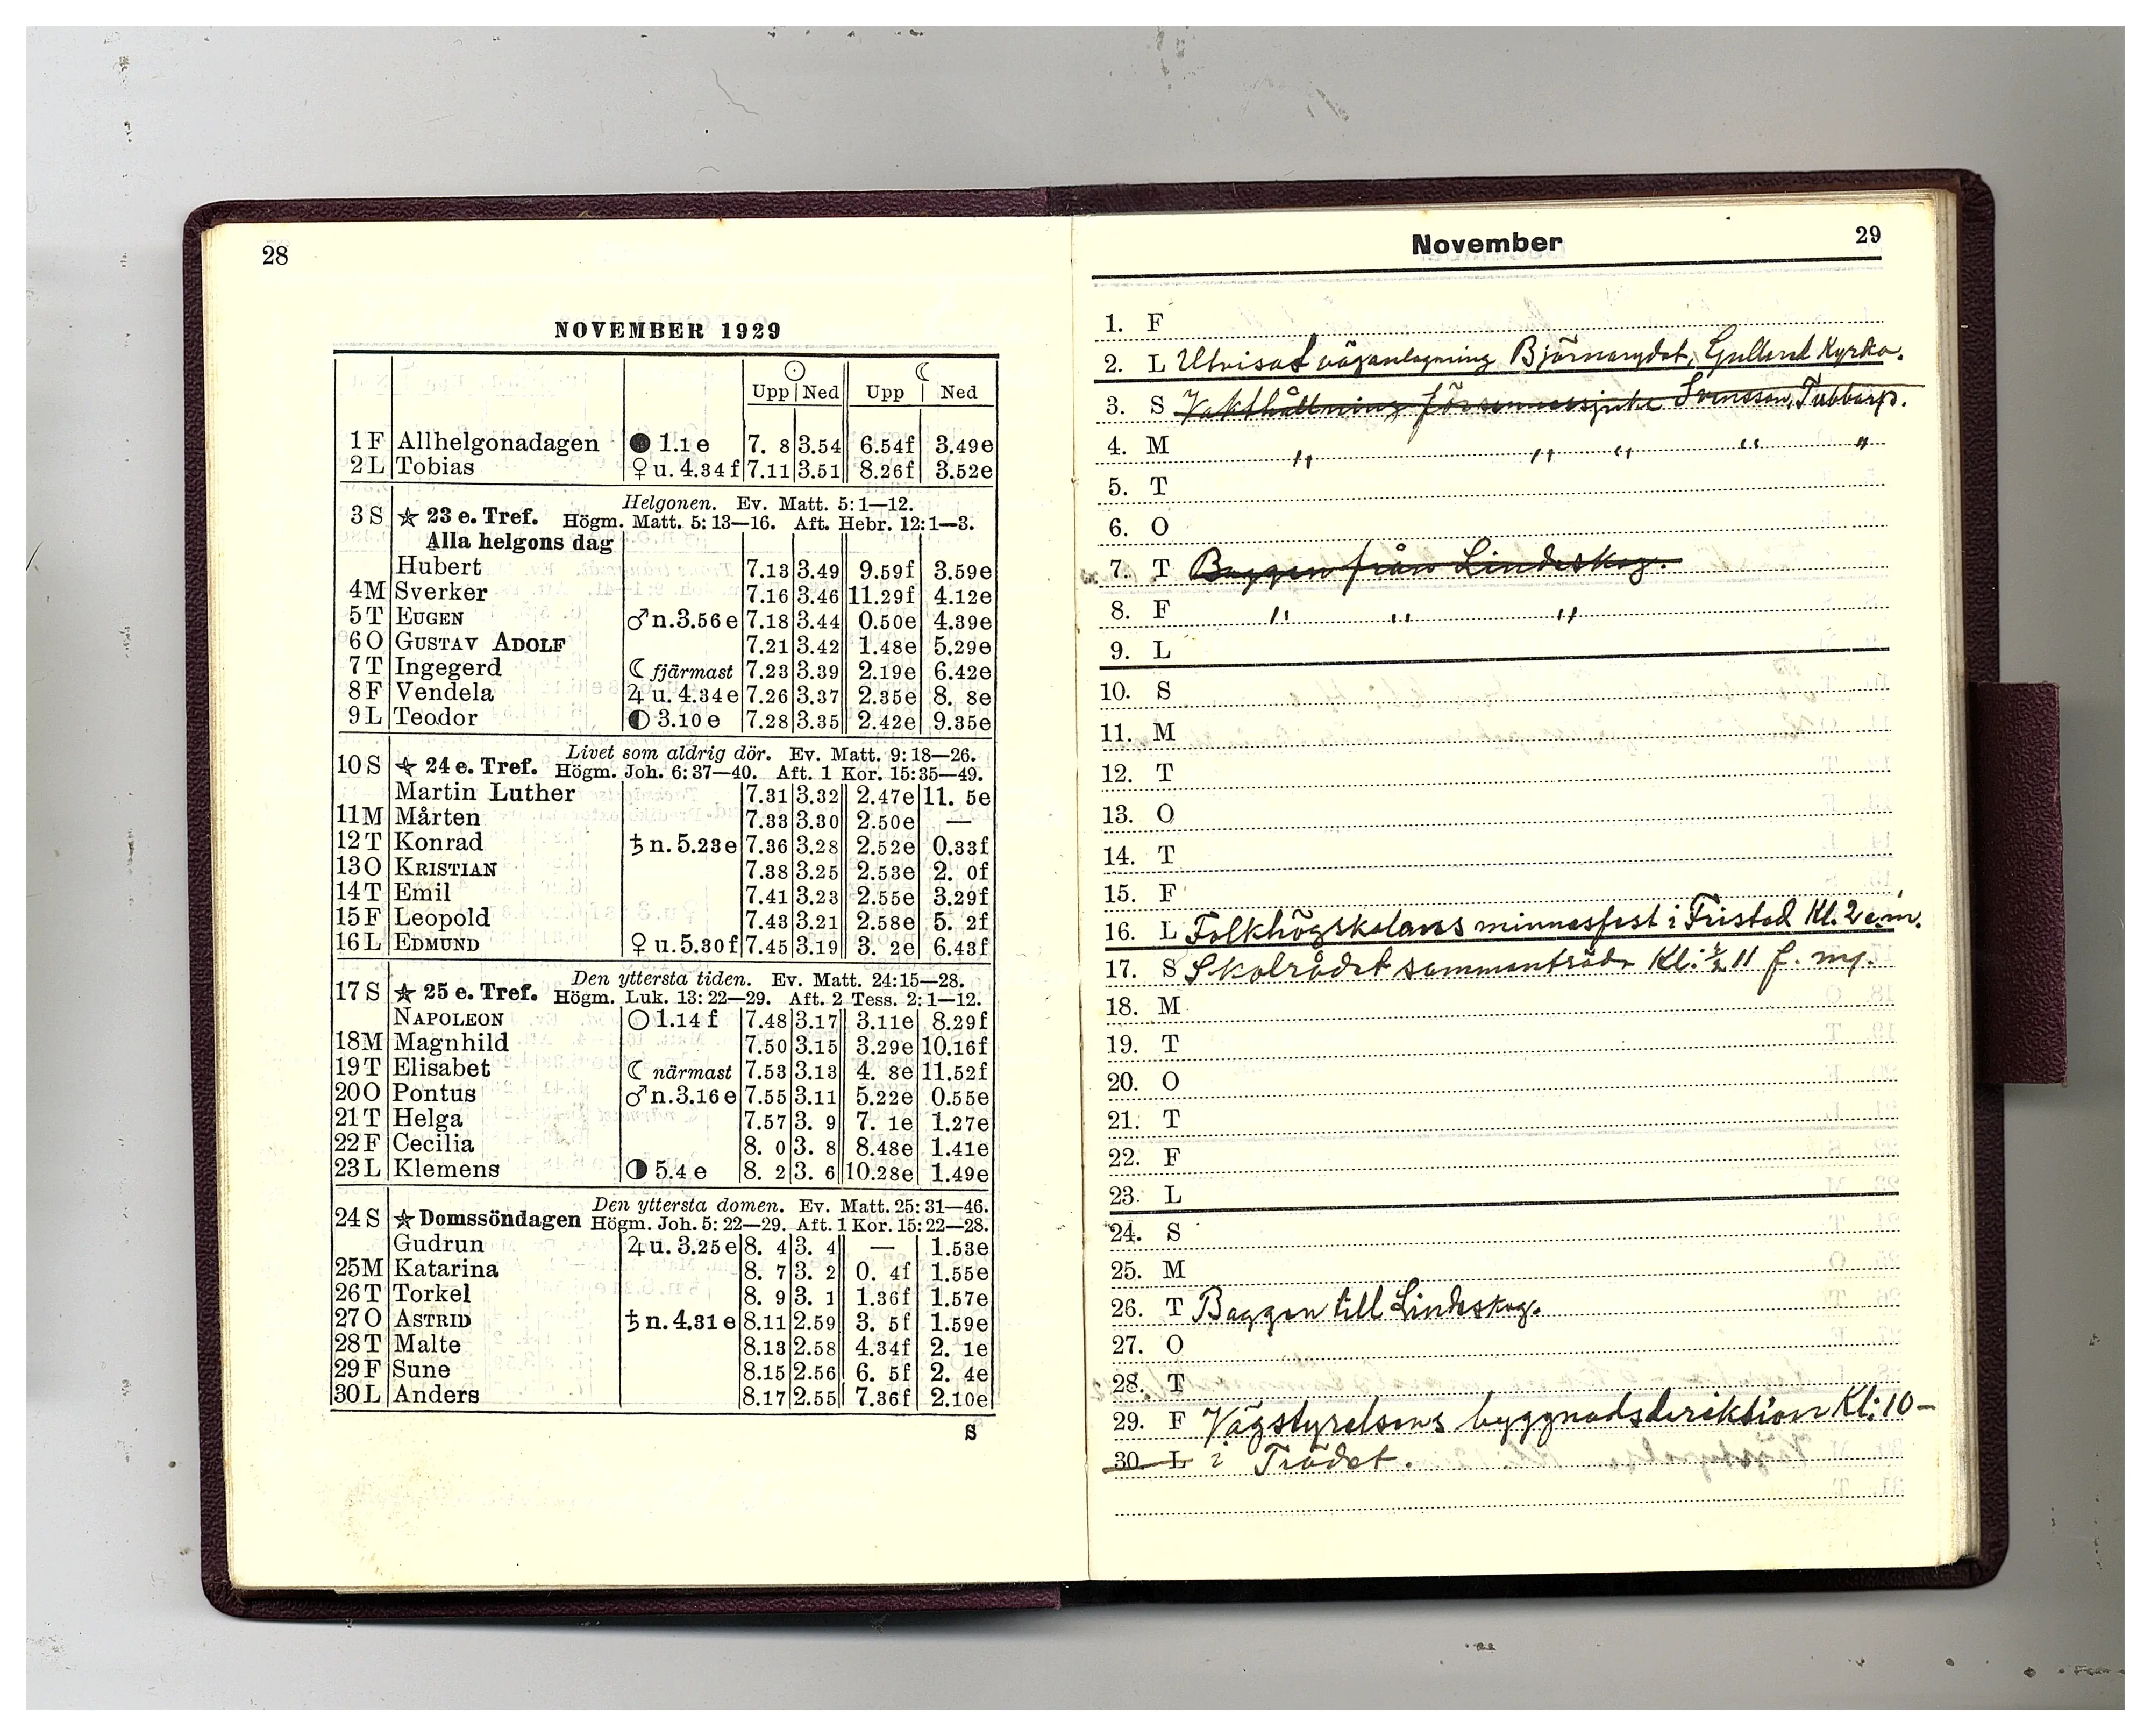 28
NOVEMBER 1929
☉ ☾
Upp Ned Upp Ned
1 F Allhelgonadagen ● 1.1 e 7. 8 3.54 6.54f 3.49e
2 L Tobias ♀ u. 4.34 f 7.11 3.51 8.26f 3.52e
Helgonen. Ev. Matt. 5: 1—12.
3 S ☆ 23 e. Tref. Högm. Matt. 5: 13—16. Aft. Hebr. 12: 1—3.
Alla helgons dag
Hubert 7.13 3.49 9.59f 3.59e
4 M Sverker 7.16 3.46 11.29f 4.12e
5 T EUGEN ♂ n. 3.56 e 7.18 3.44 0.50e 4.39e
6 O GUSTAV ADOLF 7.21 3.42 1.48e 5.29e
7 T Ingegerd ☾ fjärmast 7.23 3.39 2.19e 6.42e
8 F Vendela ♃ u. 4.34 e 7.26 3.37 2.35e 8. 8e
9 L Teodor ◐ 3.10 e 7.28 3.35 2.42e 9.35e
Livet som aldrig dör. Ev. Matt. 9: 18—26.
10 S ☆ 24 e. Tref. Högm. Joh. 6: 37—40. Aft. 1 Kor. 15: 35—49.
Martin Luther 7.31 3.32 2.47e 11. 5e
11 M Mårten 7.33 3.30 2.50e —
12 T Konrad ♄ n. 5.23 e 7.36 3.28 2.52e 0.33f
13 O KRISTIAN 7.38 3.25 2.53e 2. 0f
14 T Emil 7.41 3.23 2.55e 3.29f
15 F Leopold 7.43 3.21 2.58e 5. 2f
16 L EDMUND ♀ u. 5.30 f 7.45 3.19 3. 2e 6.43f
Den yttersta tiden. Ev. Matt. 24: 15—28.
17 S ☆ 25 e. Tref. Högm. Luk. 13: 22—29. Aft. 2 Tess. 2: 1—12.
NAPOLEON ○ 1.14 f 7.48 3.17 3.11e 8.29f
18 M Magnhild 7.50 3.15 3.29e 10.16f
19 T Elisabet ☾ närmast 7.53 3.13 4. 8e 11.52f
20 O Pontus ♂ n. 3.16 e 7.55 3.11 5.22e 0.55e
21 T Helga 7.57 3. 9 7. 1e 1.27e
22 F Cecilia 8. 0 3. 8 8.48e 1.41e
23 L Klemens ◑ 5.4 e 8. 2 3. 6 10.28e 1.49e
Den yttersta domen. Ev. Matt. 25: 31—46.
24 S ☆ Domssöndagen Högm. Joh. 5: 22—29. Aft. 1 Kor. 15: 22—28.
Gudrun ♃ u. 3.25 e 8. 4 3. 4 — 1.53e
25 M Katarina 8. 7 3. 2 0. 4f 1.55e
26 T Torkel 8. 9 3. 1 1.36f 1.57e
27 O ASTRID ♄ n. 4.31 e 8.11 2.59 3. 5f 1.59e
28 T Malte 8.13 2.58 4.34f 2. 1e
29 F Sune 8.15 2.56 6. 5f 2. 4e
30 L Anders 8.17 2.55 7.36f 2.10e
S
November 29
1. F
2. L Utvisat väganlagning Björnarydet, Gullered Kyrka.
3. S Vakthållning för sinnessjuke Svensson, Tubbarp.
4. M " " " " "
5. T
6. O
7. T Baggen från Lindeskog.
8. F " " "
9. L
10. S
11. M
12. T
13. O
14. T
15. F
16. L Folkhögskolans minnesfest i Fristad Kl. 2 e.m.
17. S Skolrådet sammanträde Kl: ½ 11 f. m.
18. M
19. T
20. O
21. T
22. F
23. L
24. S
25. M
26. T Baggen till Lindeskog.
27. O
28. T
29. F Vägstyrelsens byggnadsdirektion Kl: 10 –
30. L i Trädet.